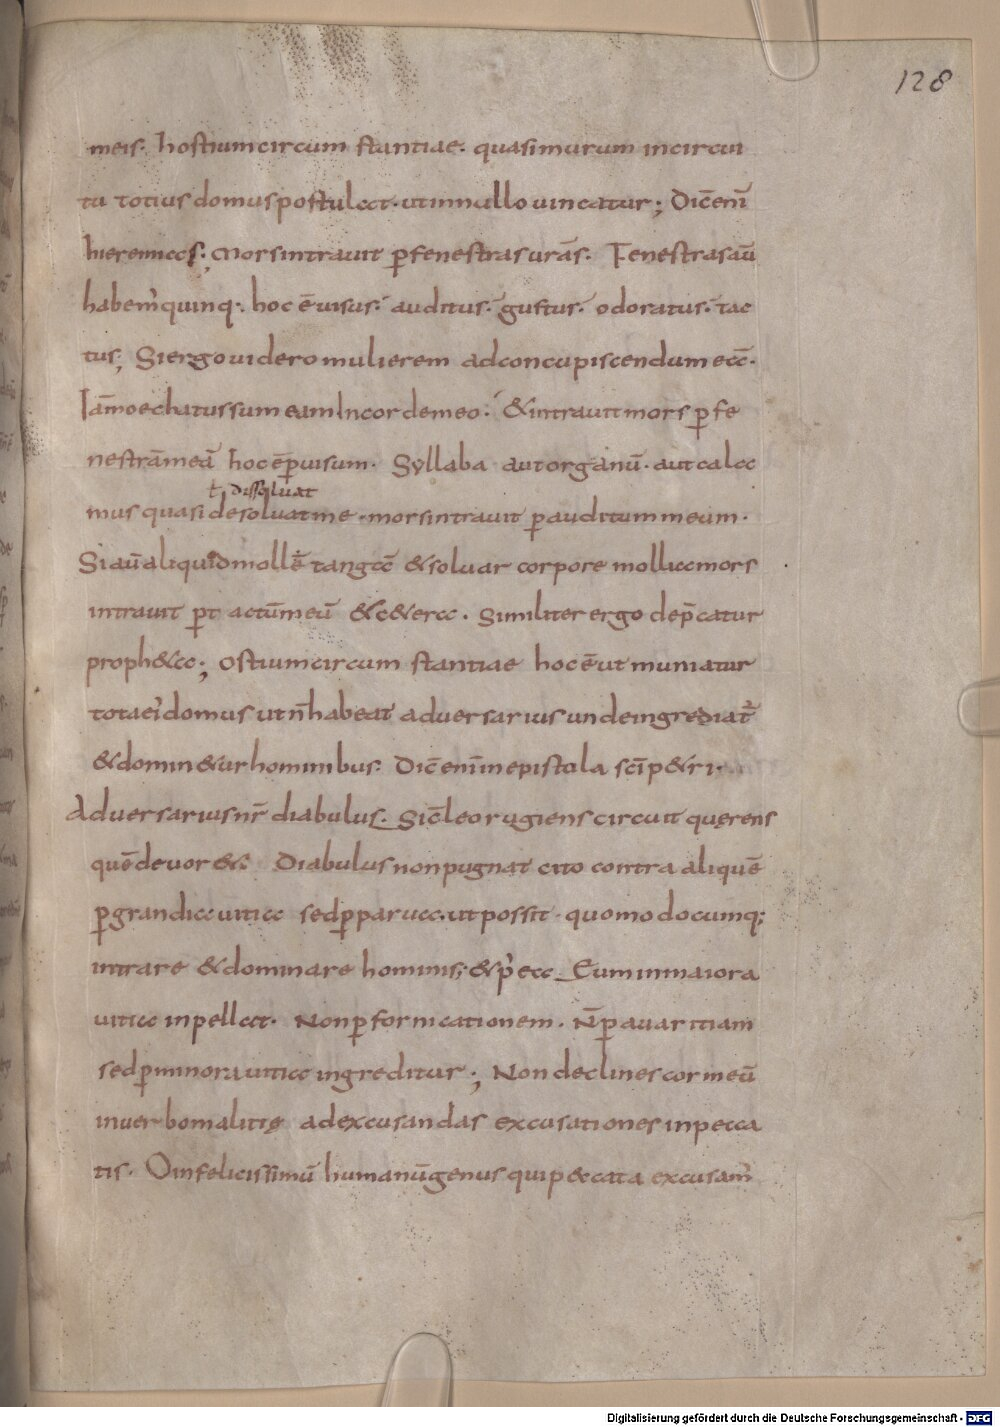 128
meis. hostiumcircum stantiae. quasimurum incircui
tu totius domuspostulat. utinnullo uincatur; Dic̄eni̅
hieremias; morsintrauit ꝑfenestras urās. Fenestrasau̅
habem᾽quinq:. hoc ēuisus. auditus. gustus. odoratus. tac
tus; Siergouidero mulierem adconcupiscendum eā.
Iāmoechatussum eamIncordemeo. &intrauit mors ꝑ fe
nestrāmeā hocēꝑuisum. Syllaba autorganū. autcala
ł dissoluat
mus quasi desoluatme. morsintrauit ꝑauditummeum.
Siau̅aliquidmollē tangā &soluar corpore mollia mors
intrauit ꝑt actūmeū &c&era. Similiter ergo dep̄catur
proph&a; Ostiumcircum stantiae hocēut muniatur
totaei᾽domus utn̄habeat aduersarius undeingrediat᾽
&domin&ur hominibus. Dic̄enim̄inepistola sc̄ip&ri.
Aduersariusnr̄ diabulus. Sic̄leorugiens circuit quęrens
quēdeuor&. Diabulus nonpugnat cito contra aliquē
ꝑgrandia uitia sedꝑparua. utpossit. quomodocumq;
intrare &dominare hominis; &p᾽ea Eum inmaiora
uitia inpellat. Nonꝑfornicationem. N̄ꝑauaritiam
sedꝑminora uitia ingreditur; Non declines cormeū
inuerbomalitię adexcusandas excusationes inpecca
tis. Oinfelicissimū humanūgenus quip&cata excusam᾽
Digitalisierung gefördert durch die Deutsche Forschungsgemeinschaft - DFG